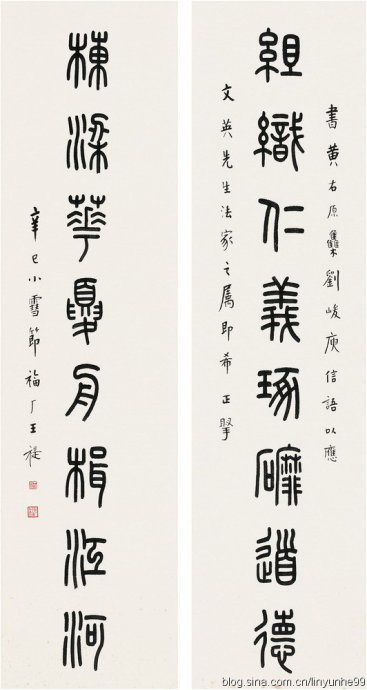 書黃右原集劉峻庾信語以應
組織仁義琢磨道德
文英先生法家之屬即希正掔
棟梁華夏舟楫江河
辛巳小雪節福厂王禔
blog.sina.com.cn/linyunhe99